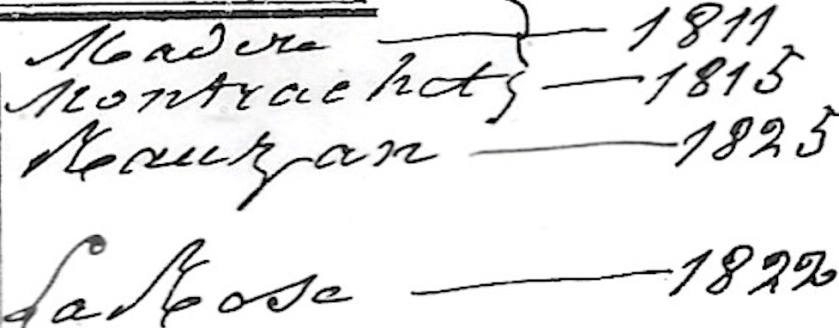 Madere — 1811
Montrachet — 1815
Rauzan — 1825
La Rose — 1822